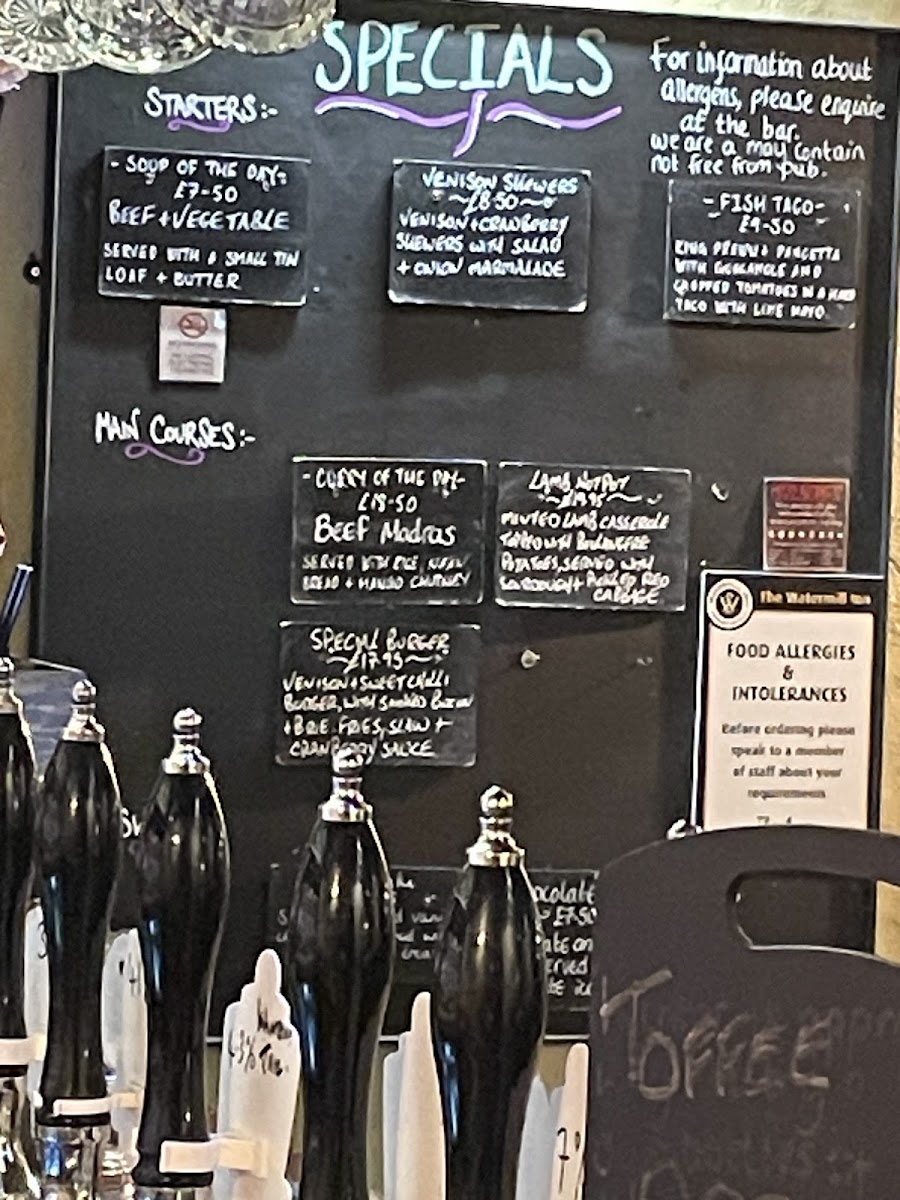 SPECIALS
For information about
allergens, please enquire
at the bar.
we are a may contain
not free from pub.
STARTERS:-
- SOUP OF THE DAY-
£7-50
BEEF + VEGETABLE
SERVED WITH A SMALL TIN
LOAF + BUTTER
VENISON SKEWERS
~£8.50~
VENISON + CRANBERRY
SKEWERS WITH SALAD
+ ONION MARMALADE
- FISH TACO-
£9-50
KING PRAWN + PANCETTA
WITH AND
CHOPPED TOMATOES IN A HARD
TACO WITH LIME MAYO
MAIN COURSES:-
- CURRY OF THE DAY-
£18-50
Beef Madras
SERVED WITH RICE, NAAN
BREAD + MANGO CHUTNEY
LAMB HOTPOT
~£19.95~
MINTED LAMB CASSEROLE
TOPPED WITH BOULANGERE
POTATOES, SERVED WITH
SOURDOUGH + PICKLED RED
CABBAGE
SPECIAL BURGER
~£17.95~
VENISON + SWEET CHILLI
BURGER, WITH SMOKED BACON
+ BRIE. FRIES, SLAW +
CRANBERRY SAUCE
The Watermill Inn
FOOD ALLERGIES
&
INTOLERANCES
Before ordering please
speak to a member
of staff about your
requirements
ocolate
£7.50
ate an
erved
TOFFEE